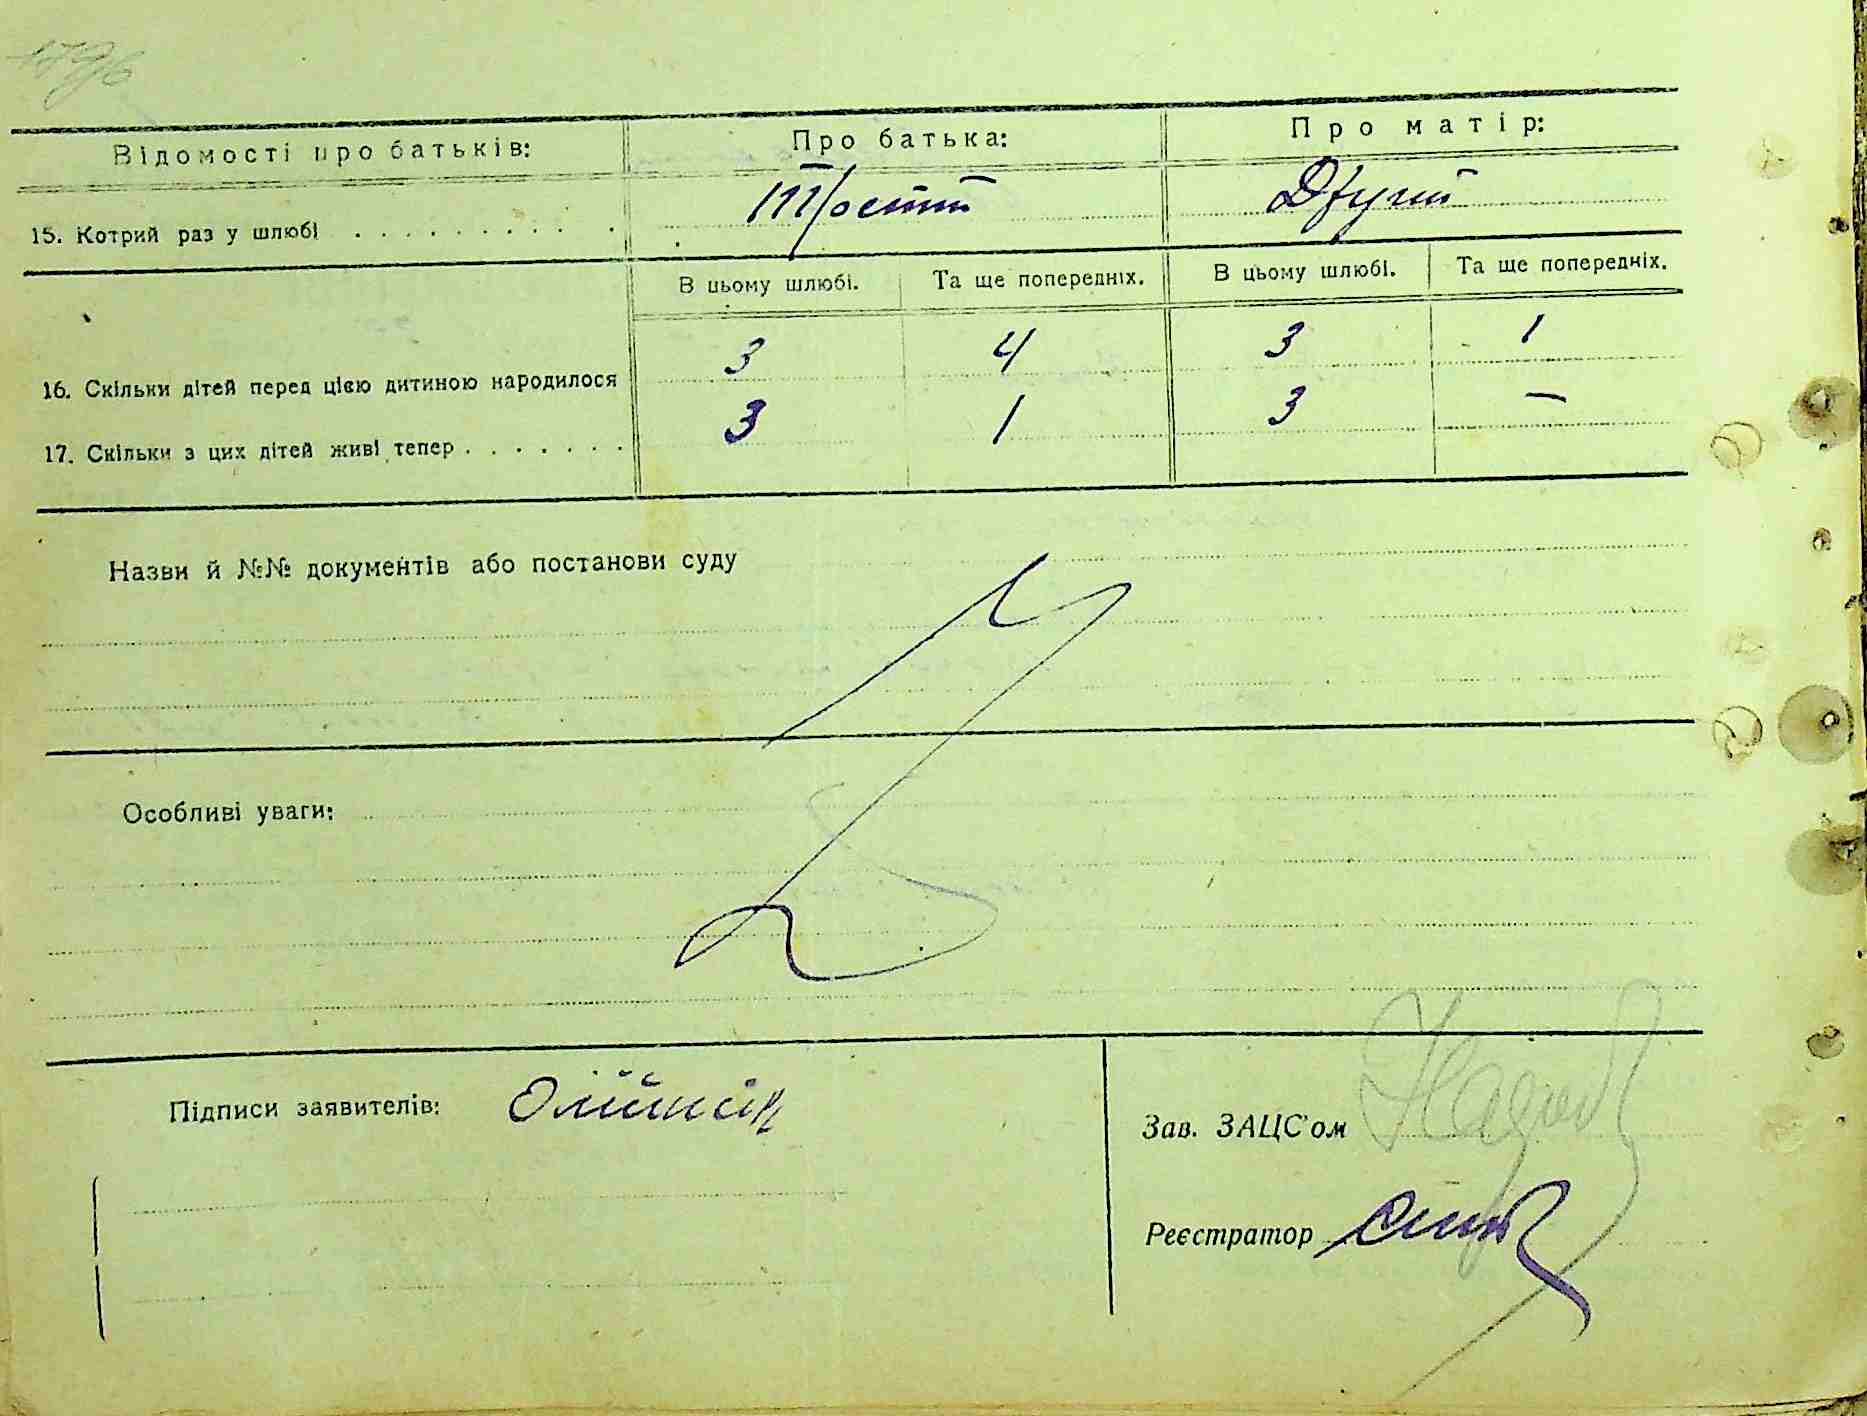 179б
Відомості про батьків: Про батька: Про матір:
15. Котрий раз у шлюбі . . . . . . . . . . Другий
В цьому шлюбі. Та ще попередніх. В цьому шлюбі. Та ще попередніх.
16. Скільки дітей перед цією дитиною народилося 3 4 3 1
17. Скільки з цих дітей живі тепер . . . . . . . 3 1 3 —
Назви й №№ документів або постанови суду
Особливі уваги:
Підписи заявителів: Олійник
Зав. ЗАЦС'ом
Реєстратор